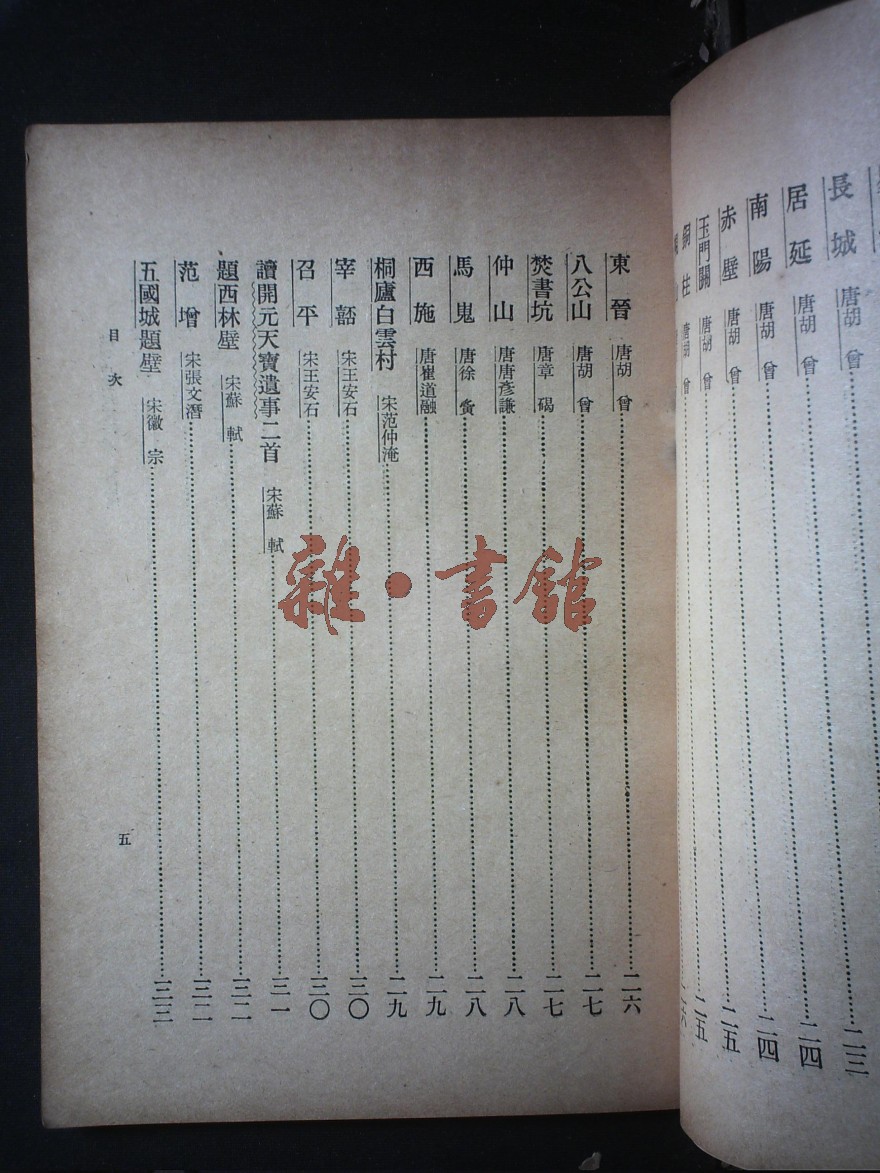 長城 唐胡曾 二三
居延 唐胡曾 二四
南陽 唐胡曾 二四
赤壁 唐胡曾 二五
玉門關 唐胡曾 二五
銅柱 唐胡曾 二六
東晉 唐胡曾 二六
八公山 唐胡曾 二七
焚書坑 唐章碣 二七
仲山 唐唐彥謙 二八
馬嵬 唐徐夤 二八
西施 唐崔道融 二九
桐廬白雲村 宋范仲淹 二九
宰嚭 宋王安石 三〇
召平 宋王安石 三〇
讀開元天寶遺事二首 宋蘇軾 三一
題西林壁 宋蘇軾 三二
范增 宋張文潛 三二
五國城題壁 宋徽宗 三三
目次
五
雜·書館